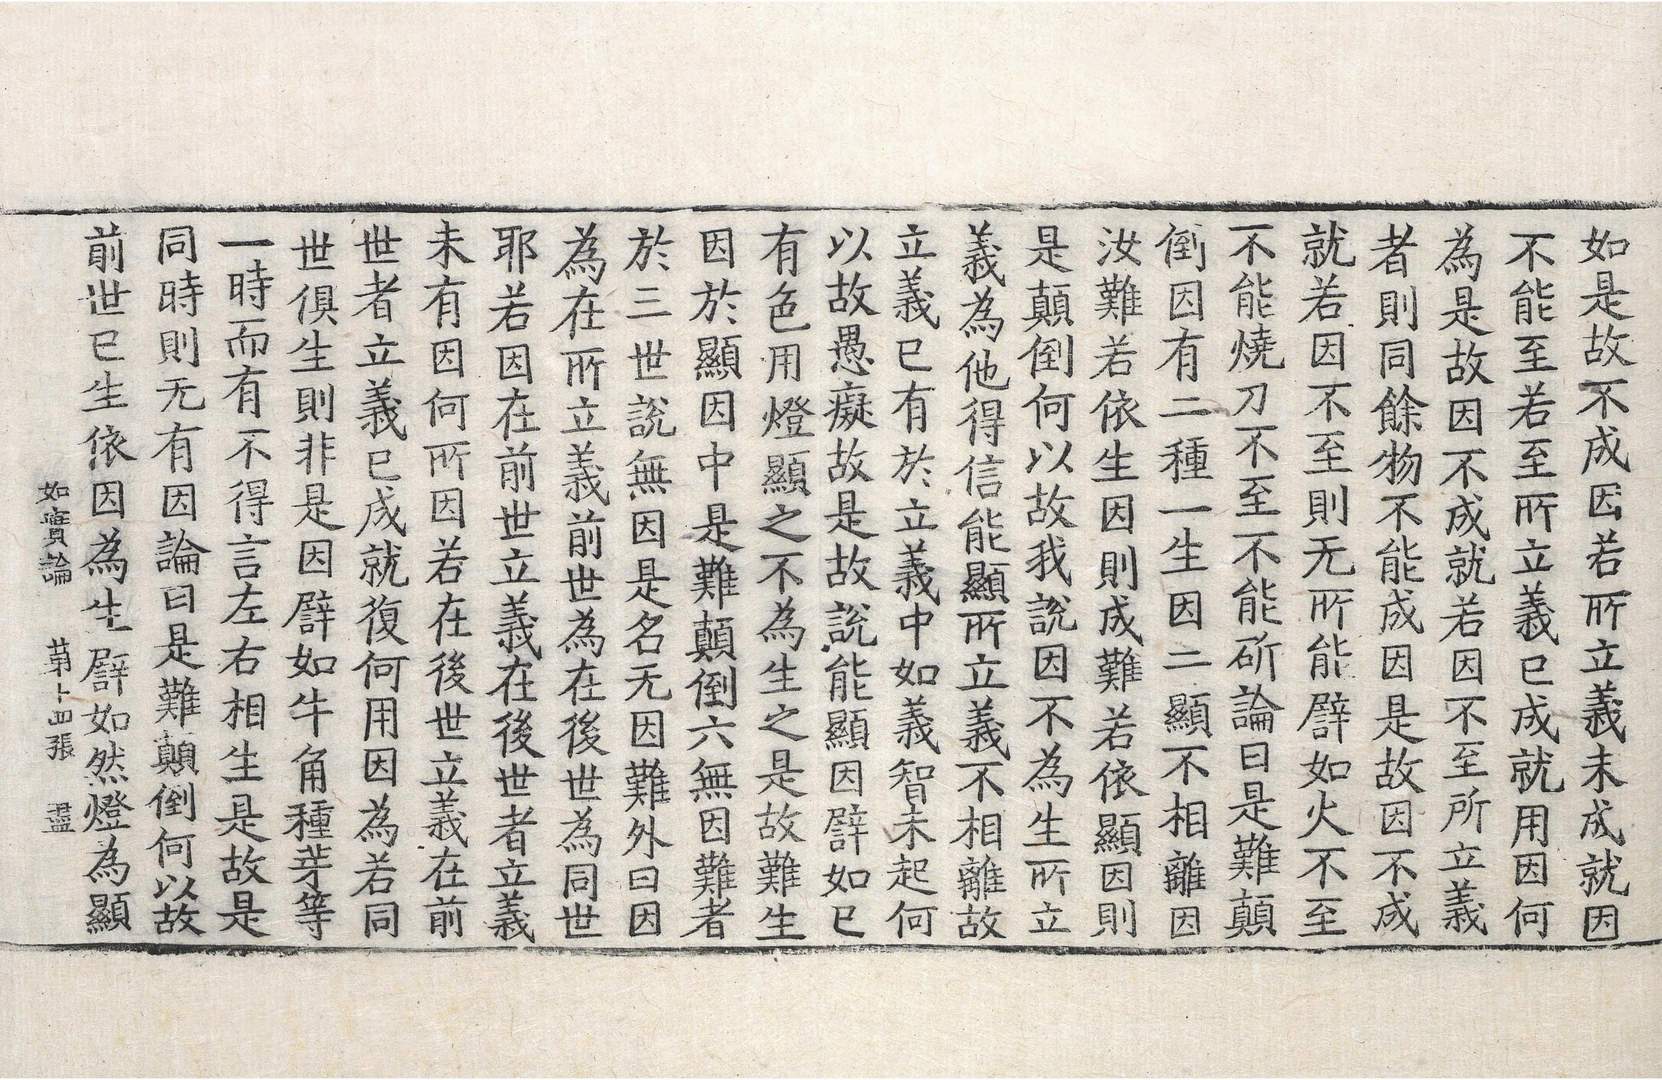 如是故不成因若所立義未成就因
不能至若至所立義已成就用因何
為是故因不成就若因不至所立義
者則同餘物不能成因是故因不成
就若因不至則无所能譬如火不至
不能燒刀不至不能斫論曰是難顛
倒因有二種一生因二顯不相離因
汝難若依生因則成難若依顯因則
是顛倒何以故我說因不為生所立
義為他得信能顯所立義不相離故
立義已有於立義中如義智未起何
以故愚癡故是故說能顯因譬如已
有色用燈顯之不為生之是故難生
因於顯因中是難顛倒六無因難者
於三世說無因是名无因難外曰因
為在所立義前世為在後世為同世
耶若因在前世立義在後世者立義
未有因何所因若在後世立義在前
世者立義已成就復何用因為若同
世俱生則非是因譬如牛角種芽等
一時而有不得言左右相生是故是
同時則无有因論曰是難顛倒何以故
前世已生依因為生譬如然燈為顯
如實論 第十四張 盡